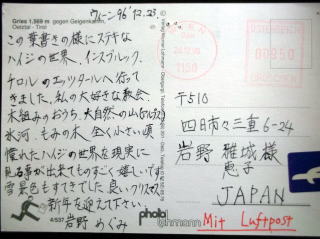 Gries 1.569 m gegen Geigenkamm
Oetztal - Tirol
ウィーン 96' 12.23.
この葉書きの様にステキな
ハイジの世界、インスブルック、
チロルのエッツタールへ行って
きました。私の大好きな教会、
木組みのおうち、大自然の山
氷河、もみの木 全く小さい頃
憧れたハイジの世界を現実に
見る事が出来てものすごく嬉しいです
雪景色もすてきでした。良いクリスマス
新年を迎えて下さい。
岩野 めぐみ
4/537
photo
Lohmann
WIEN
24.12.96
1150
REPUBLIK
ÖSTERREICH
0000850
GROSCHEN
〒510
四日市々三重6-24
岩野 雅城様
恵子
JAPAN
Mit Luftpost